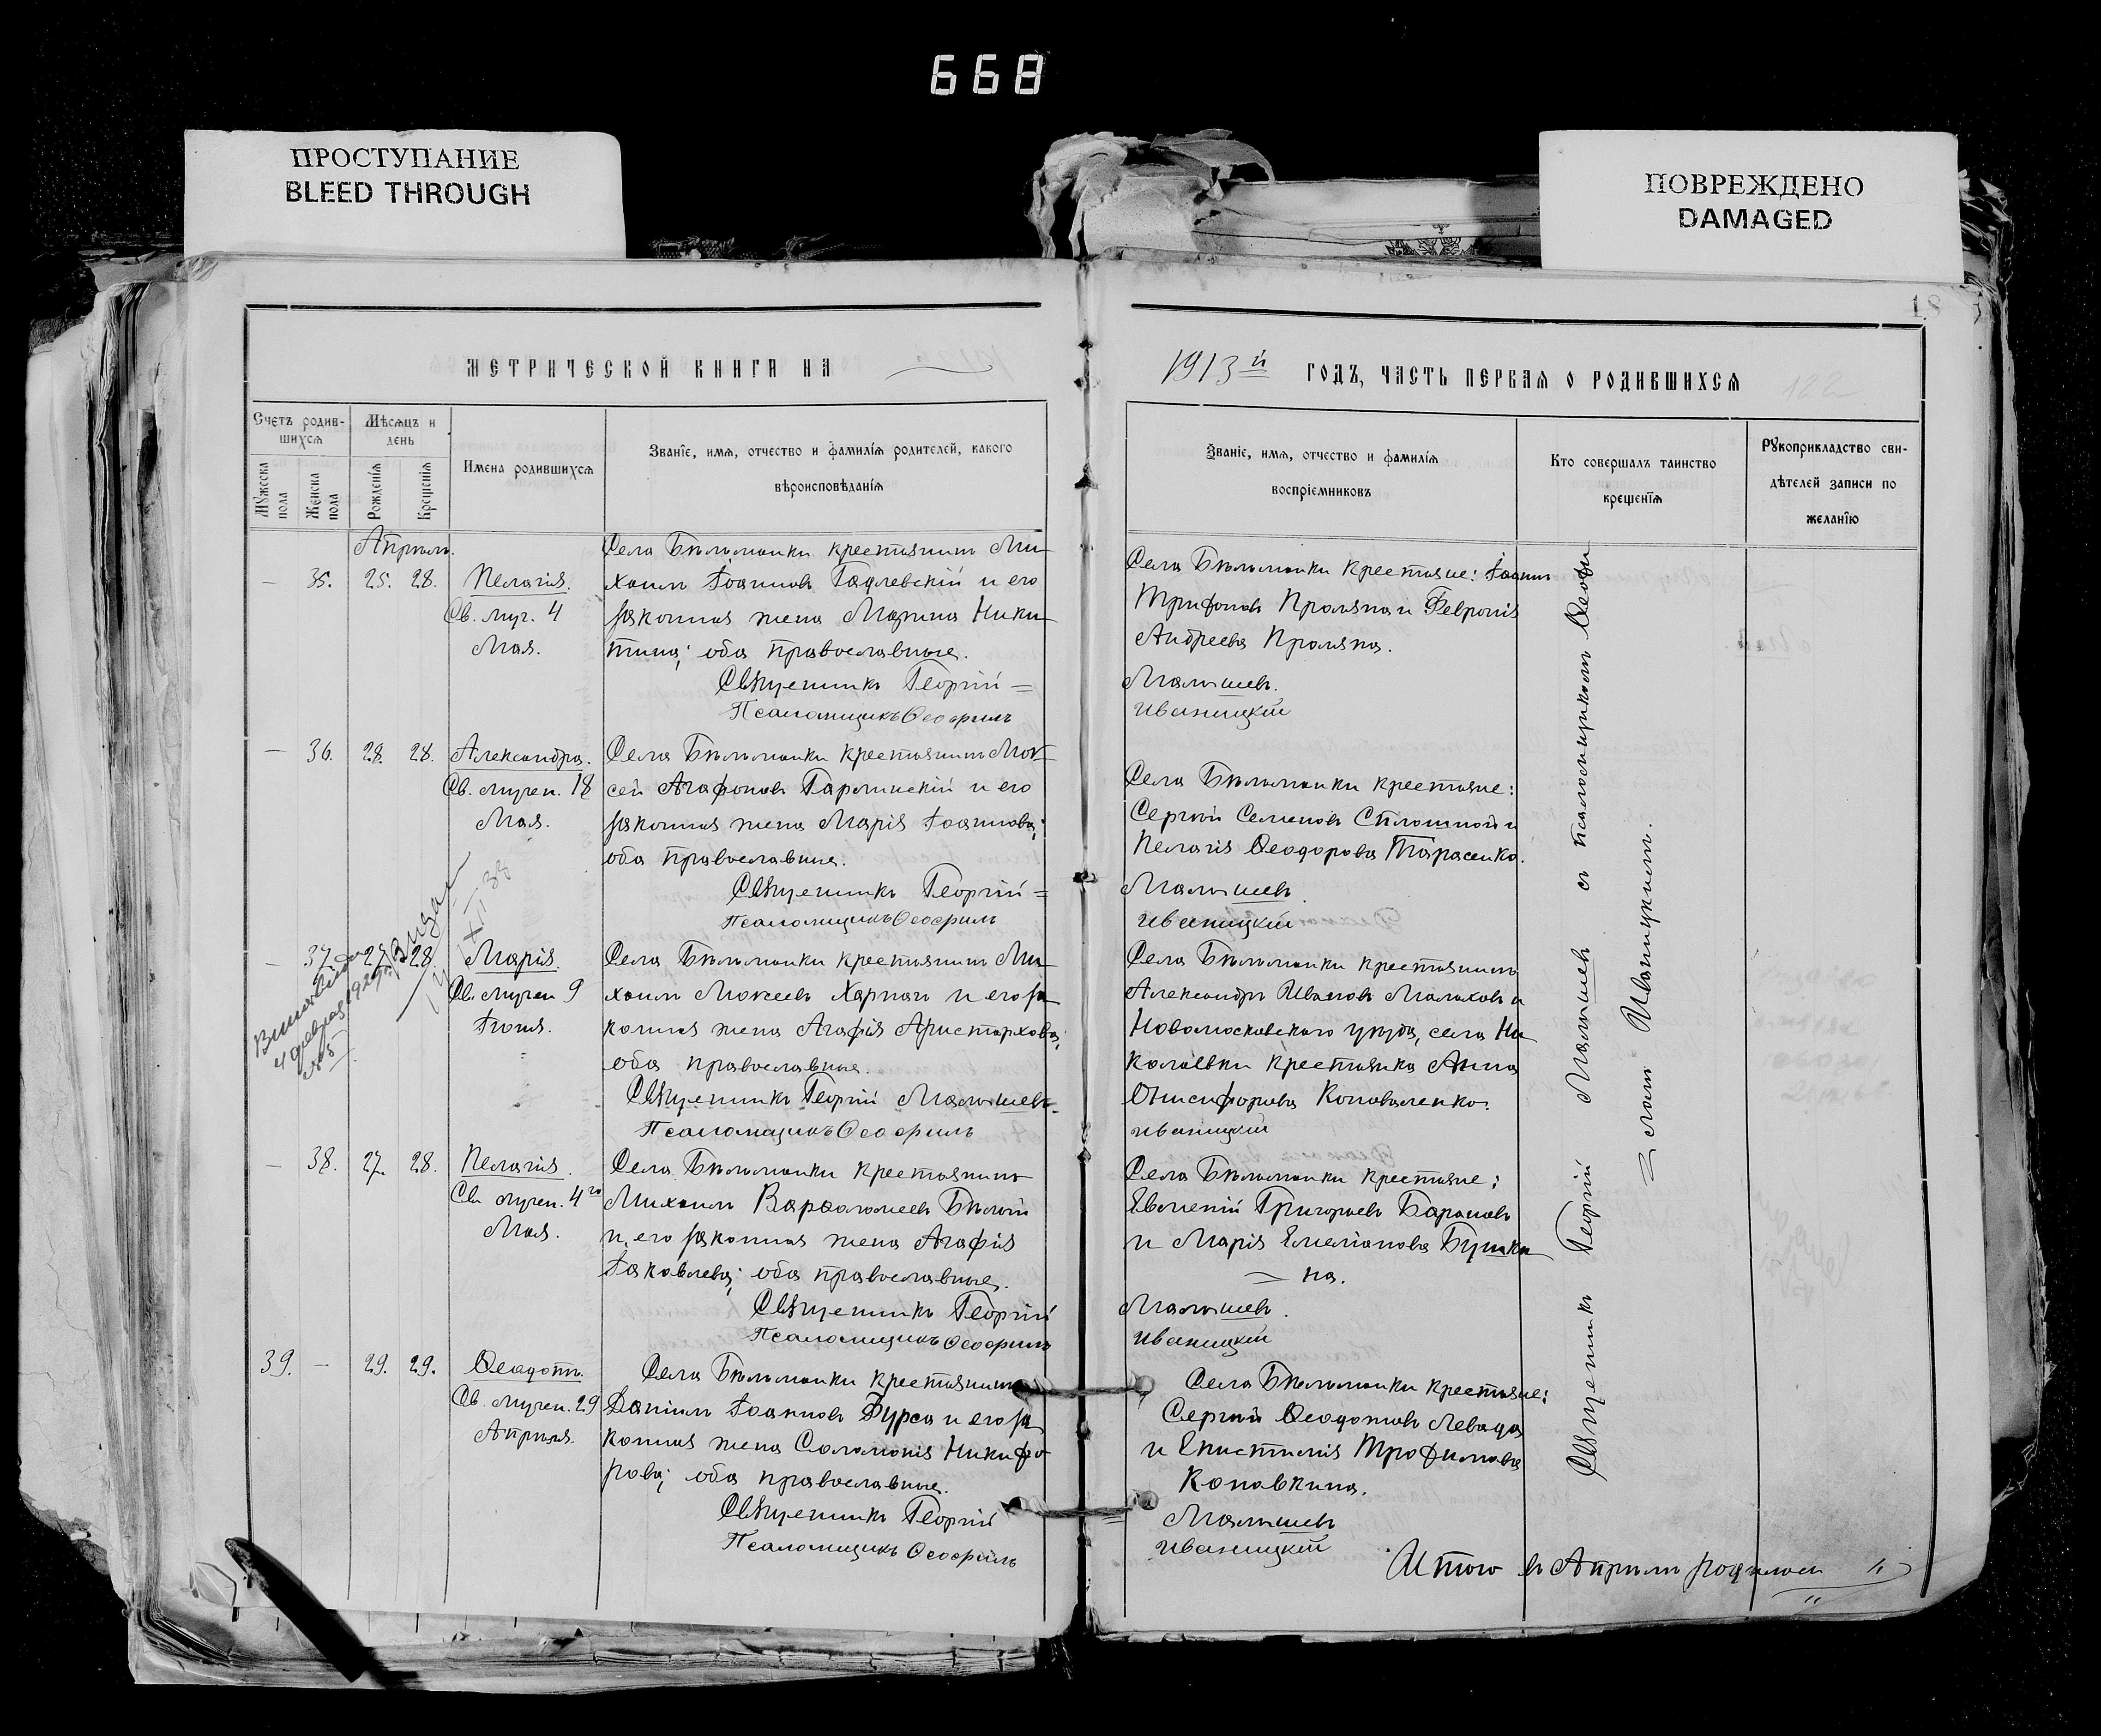 668
ПРОСТУПАНИЕ
BLEED THROUGH
ПОВРЕЖДЕНО
DAMAGED
18
МЕТРИЧЕСКОЙ КНИГИ НА
1913й ГОДЪ, ЧАСТЬ ПЕРВАЯ О РОДИВШИХСЯ
122
Счетъ родив-
шихся
Мѣсяцъ и
день
Мужеска пола
Женска пола
Рожденія
Крещенія
Имена родившихся
Званіе, имя, отчество и фамилія родителей, какого
вѣроисповѣданія
Званіе, имя, отчество и фамилія
воспріемниковъ
Кто совершалъ таинство
крещенія
Рукоприкладство сви-
дѣтелей записи по
желанію
Апрѣль.
— 35. 25. 28. Пелагія.
Св. муч. 4
Мая.
Села Бѣломанки крестьянинъ Ми-
хаилъ Іоанновъ Гадлевскій и его
законная жена Марина Ники-
тина; оба православные.
Священникъ Георгій =
Псаломщикъ Ѳеофилъ
Села Бѣломанки крестьяне: Іоаннъ
Трифоновъ Проляпа и Февронія
Андреева Проляпа.
Малышевъ.
Иваницкій
— 36. 28. 28. Александра.
Св. мучен. 18
Мая.
Села Бѣломанки крестьянинъ Мои-
сей Агафоновъ Гарлинскій и его
законная жена Марія Іоаннова;
оба православные.
Священникъ Георгій =
Псаломщикъ Ѳеофилъ
Села Бѣломанки крестьяне:
Сергій Семеновъ Сплошной и
Пелагія Ѳеодорова Тарасенко.
Малышевъ
Иваницкій
— 37. 27. 28. Марія.
Св. мучен 9
Іюня.
Села Бѣломанки крестьянинъ Ми-
хаилъ Мокеевъ Харпачъ и его за-
конная жена Агафія Аристархова;
оба православные.
Священникъ Георгій Малышевъ.
Псаломщикъ Ѳеофилъ
Села Бѣломанки крестьянинъ
Александръ Ивановъ Малаховъ и
Новомосковскаго уѣзда, села Ни-
колаевки крестьянка Анна
Онисифорова Коноваленко.
Иваницкій
— 38. 27. 28. Пелагія.
Св мучен. 4го
Мая.
Села Бѣломанки крестьянинъ
Михаилъ Варѳоломеевъ Бѣлый
и его законная жена Агафія
Іаковлева; оба православные.
Священникъ Георгій
Псаломщикъ Ѳеофилъ
Села Бѣломанки крестьяне:
Евменій Григорьевъ Барановъ
и Марія Емеліанова Бушки-
= на.
Малышевъ.
Иваницкій
39. — 29. 29. Ѳеодотъ.
Св. мучен. 29
Апрѣля.
Села Бѣломанки крестьянинъ
Даніилъ Іоанновъ Бурса и его за-
конная жена Соломонія Никифо-
рова; оба православные.
Священникъ Георгій
Псаломщикъ Ѳеофилъ
Села Бѣломанки крестьяне:
Сергій Ѳеодотовъ Левада
и Епистимія Трофимова
Коновкина.
Малышевъ
Иваницкій
Священникъ Георгій Малышевъ съ псаломщикомъ Ѳеофи-
= ломъ Иваницкимъ.
Итого въ Апрѣлѣ родилось